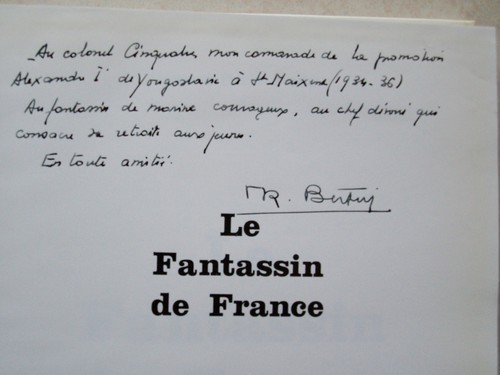 Au colonel Cinquabre, mon camarade de la promotion
Alexandre Iᵉʳ de Yougoslavie à St Maixent (1934-36)
Au fantassin de marine courageux, au chef dévoué qui
consacre sa retraite aux jeunes.
En toute amitié.
R.
Le
Fantassin
de France